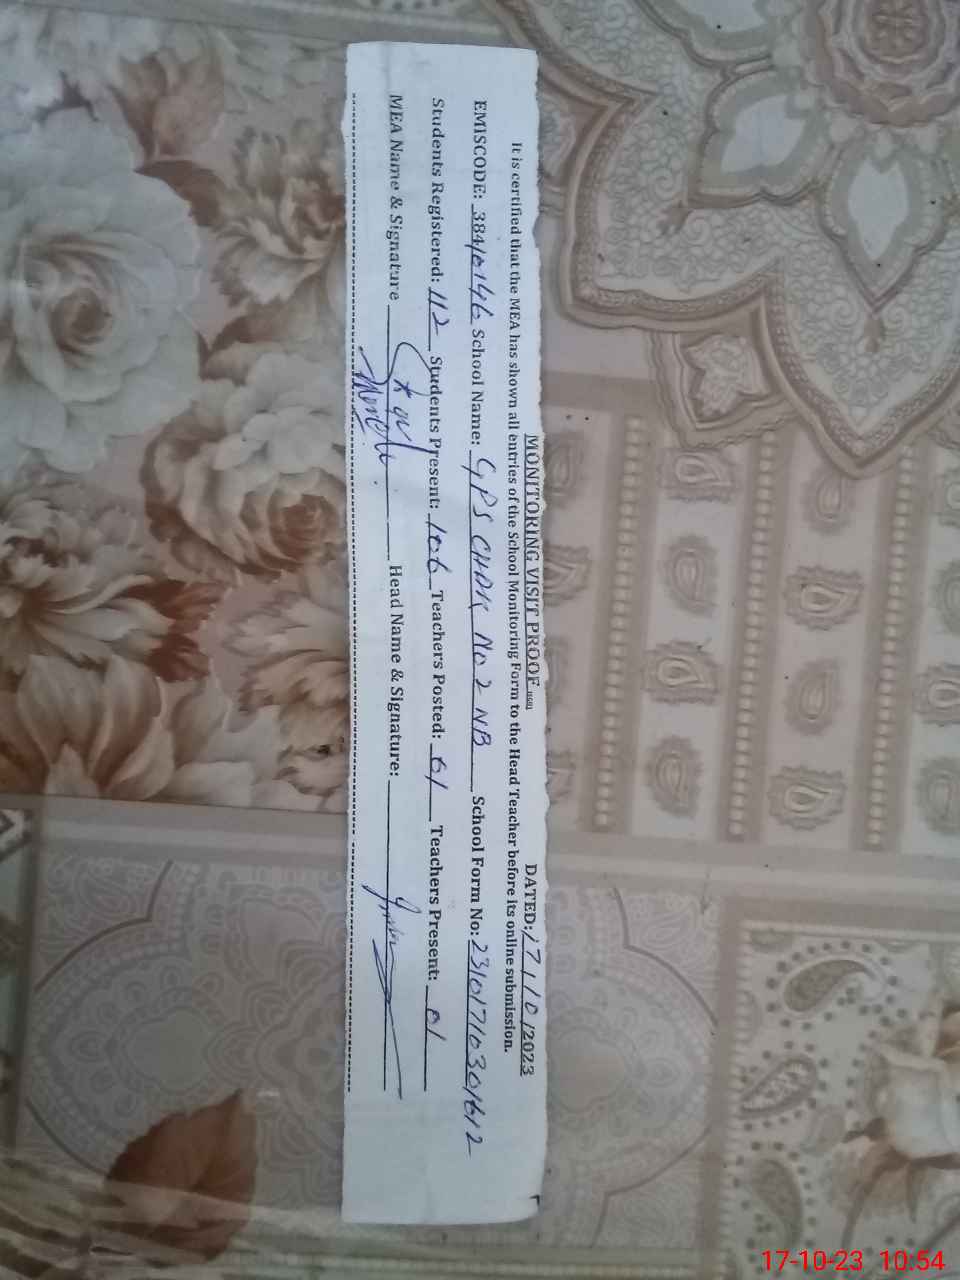 MONITORING VISIT PROOF DATED: 17/10/2023
It is certified that the MEA has shown all entries of the School Monitoring Form to the Head Teacher before its online submission.
EMISCODE: 38410146 School Name: GPS CHAK No 2 NB School Form No: 23101710301612
Students Registered: 112 Students Present: 106 Teachers Posted: 01 Teachers Present: 01
MEA Name & Signature Head Name & Signature:
17-10-23 10:54